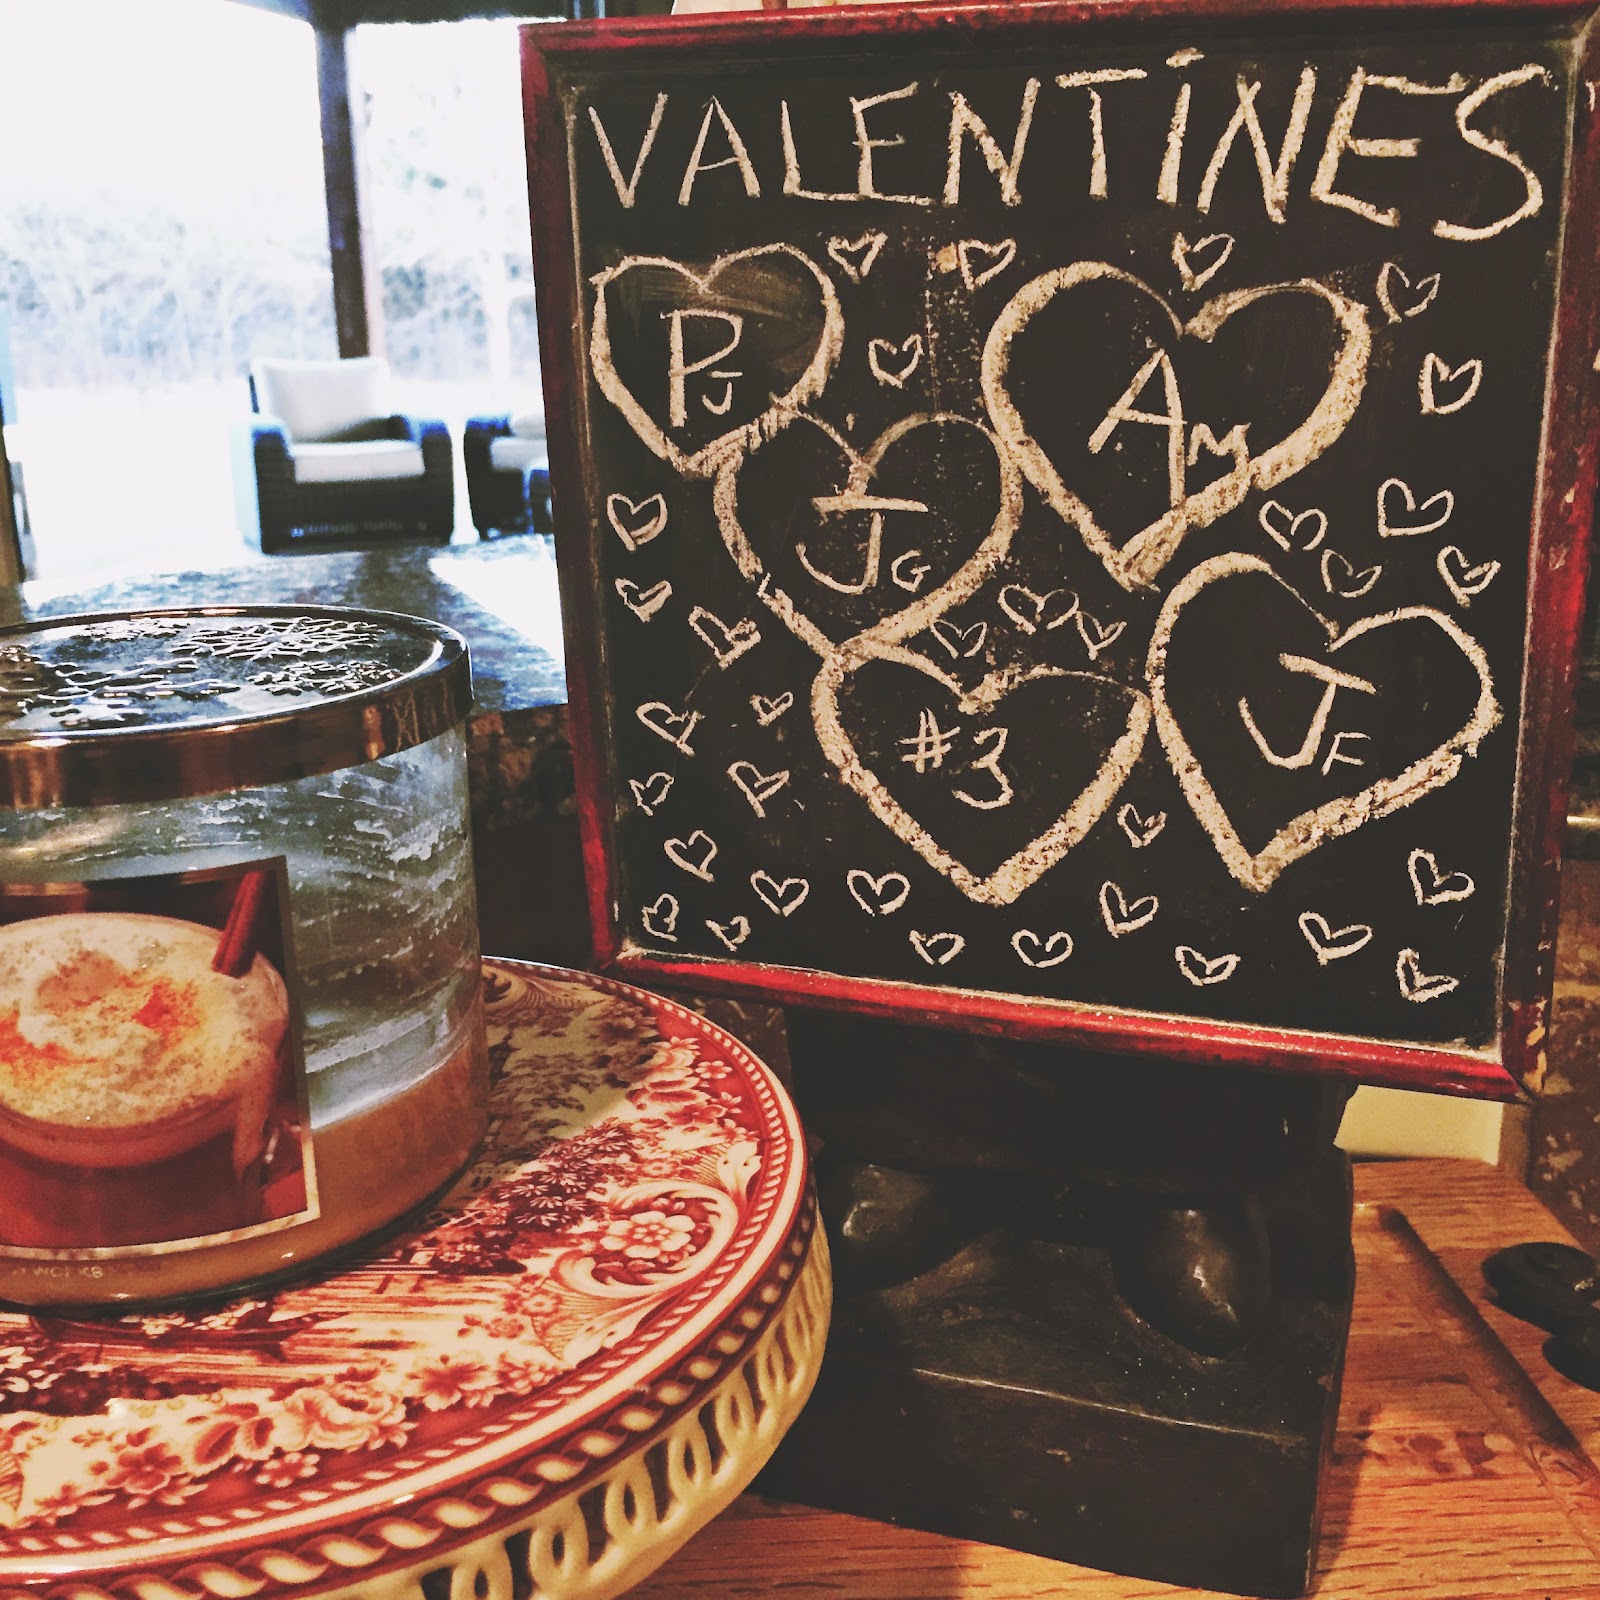 VALENTINES
PJ
AM
JG
#3
JF
WORKS